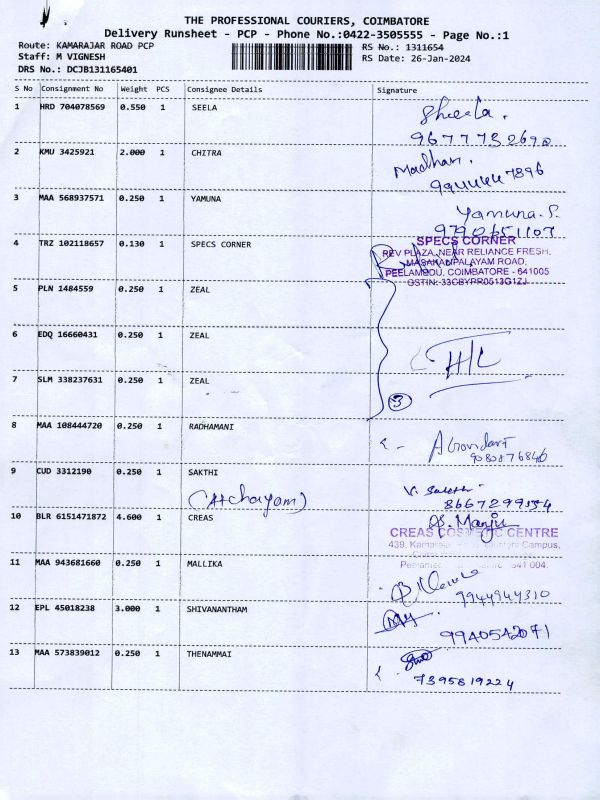 THE PROFESSIONAL COURIERS, COIMBATORE
Delivery Runsheet - PCP - Phone No.:0422-3505555 - Page No.:1
Route: KAMARAJAR ROAD PCP RS No.: 1311654
Staff: M VIGNESH RS Date: 26-Jan-2024
DRS No.: DCJB131165401
S No Consignment No Weight PCS Consignee Details Signature
1 HRD 704078569 0.550 1 SEELA Sheela.
9677732690
2 KMU 3425921 2.000 1 CHITRA Madhan.
9944447896
3 MAA 568937571 0.250 1 YAMUNA Yamuna.S.
9790651107
4 TRZ 102118657 0.130 1 SPECS CORNER SPECS CORNER
REV PLAZA, NEAR RELIANCE FRESH,
MASAKANPALAYAM ROAD,
PEELAMEDU, COIMBATORE - 641005
GSTIN: 33CBYPR0513G1ZJ
5 PLN 1484559 0.250 1 ZEAL
6 EDQ 16660431 0.250 1 ZEAL H/L
7 SLM 338237631 0.250 1 ZEAL
3
8 MAA 108444720 0.250 1 RADHAMANI
9080876846
9 CUD 3312190 0.250 1 SAKTHI V. Sakthi
(Atchayam) 8667299154
10 BLR 6151471872 4.600 1 CREAS B. Manju
CREAS COSMETIC CENTRE
439, Kamaraj Campus,
641 004.
11 MAA 943681660 0.250 1 MALLIKA
9944944310
12 EPL 45018238 3.000 1 SHIVANANTHAM
9940542071
13 MAA 573839012 0.250 1 THENAMMAI
7395819224